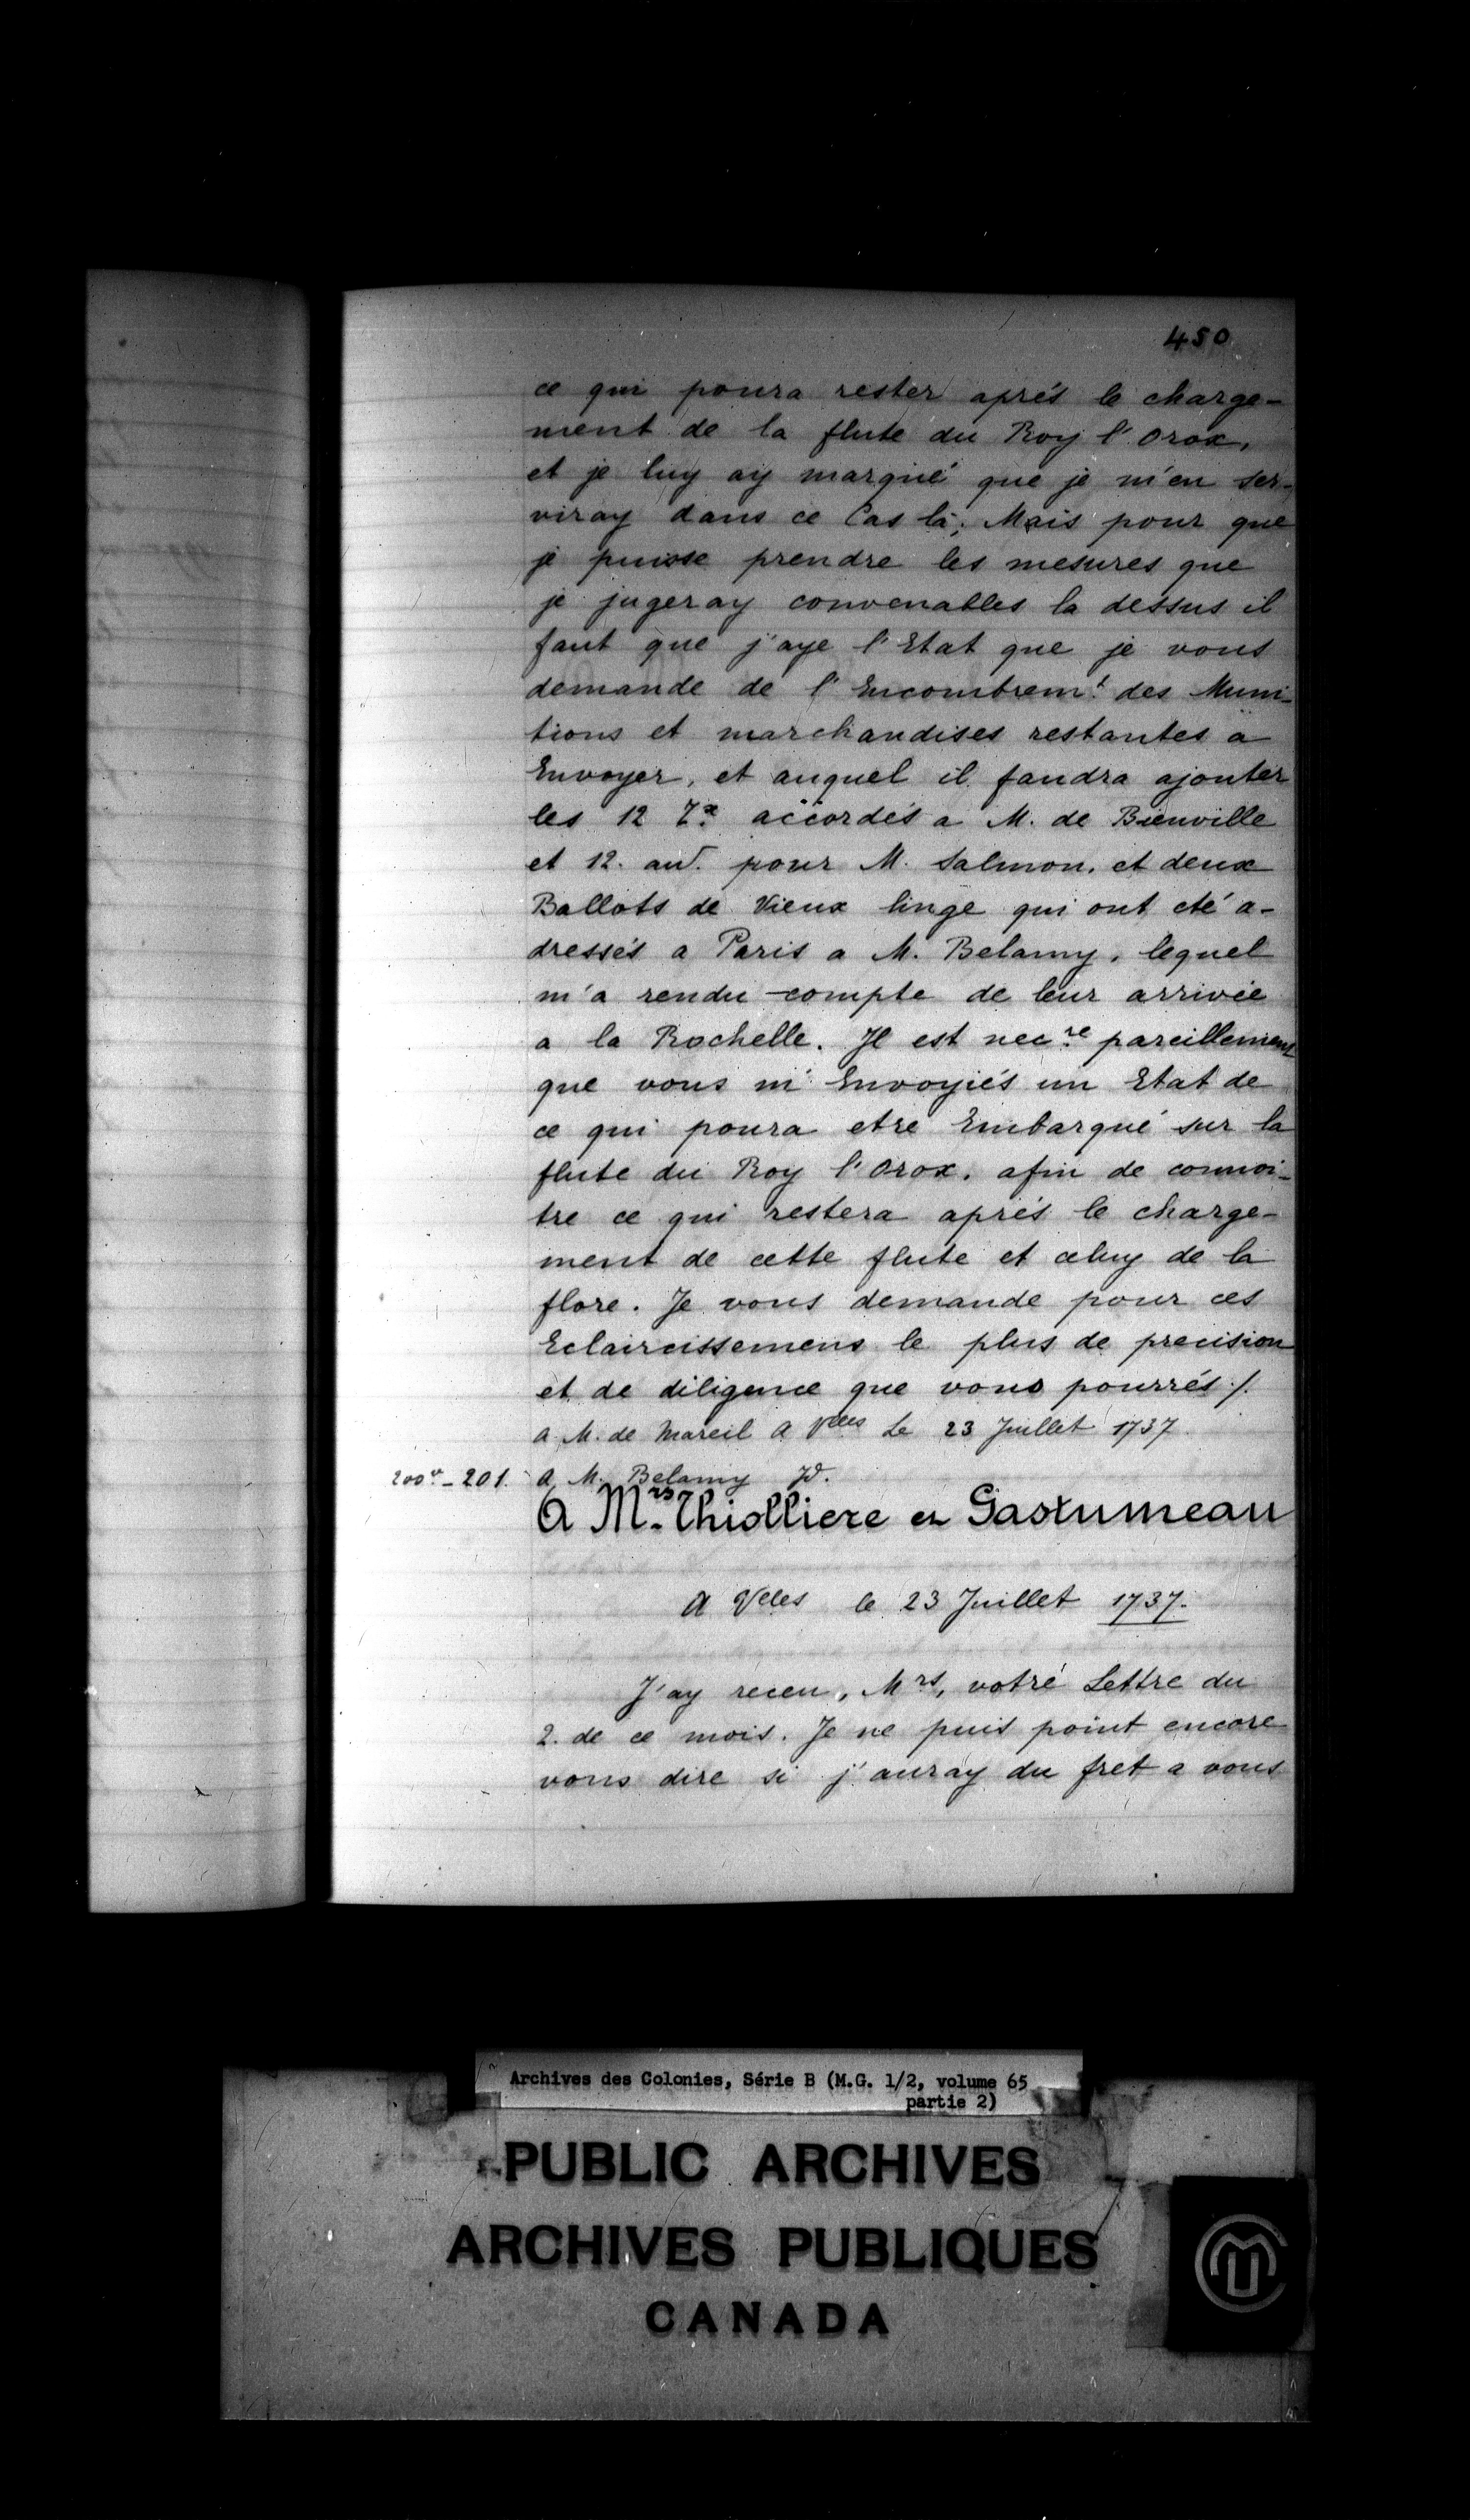 450
ce qui poura rester aprés le charge-
ment de la flute du Roy l'Orox,
et je luy ay marqué que je m'en ser-
viray dans ce Cas là; Mais pour que
je puisse prendre les mesures que
je jugeray convenables la dessus il
faut que j'aye l'Etat que je vous
demande de l'Encombremt des Muni-
tions et marchandises restantes a
Envoyer, et auquel il faudra ajouter
les 12 Tx accordés a M. de Bienville
et 12. au. pour M. Salmon, et deux
Ballots de Vieux linge qui ont eté a-
dressés a Paris a M. Belamy, lequel
m'a rendu compte de leur arrivée
a la Rochelle. Il est necre pareillement
que vous m'Envoyiés un Etat de
ce qui poura etre Embarqué sur la
flute du Roy l'Orox, afin de connoi-
tre ce qui restera aprés le charge-
ment de cette flute et celuy de la
flore. Je vous demande pour ces
Eclaircissemens le plus de precision
et de diligence que vous pourrés ./.
a M. de Mareil a Vlles Le 23 Juillet 1737.
200vo - 201. a M. Belamy Id.
A Mrs Thiolliere et Gastumeau
A Vlles le 23 Juillet 1737.
J'ay receu, Mrs, votre Lettre du
2. de ce mois. Je ne puis point encore
vous dire si j'auray du fret a vous
Archives des Colonies, Série B (M.G. 1/2, volume 65
partie 2)
PUBLIC ARCHIVES
ARCHIVES PUBLIQUES
CANADA